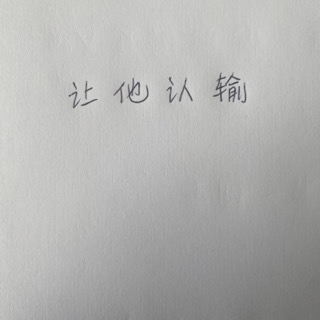 让他认输